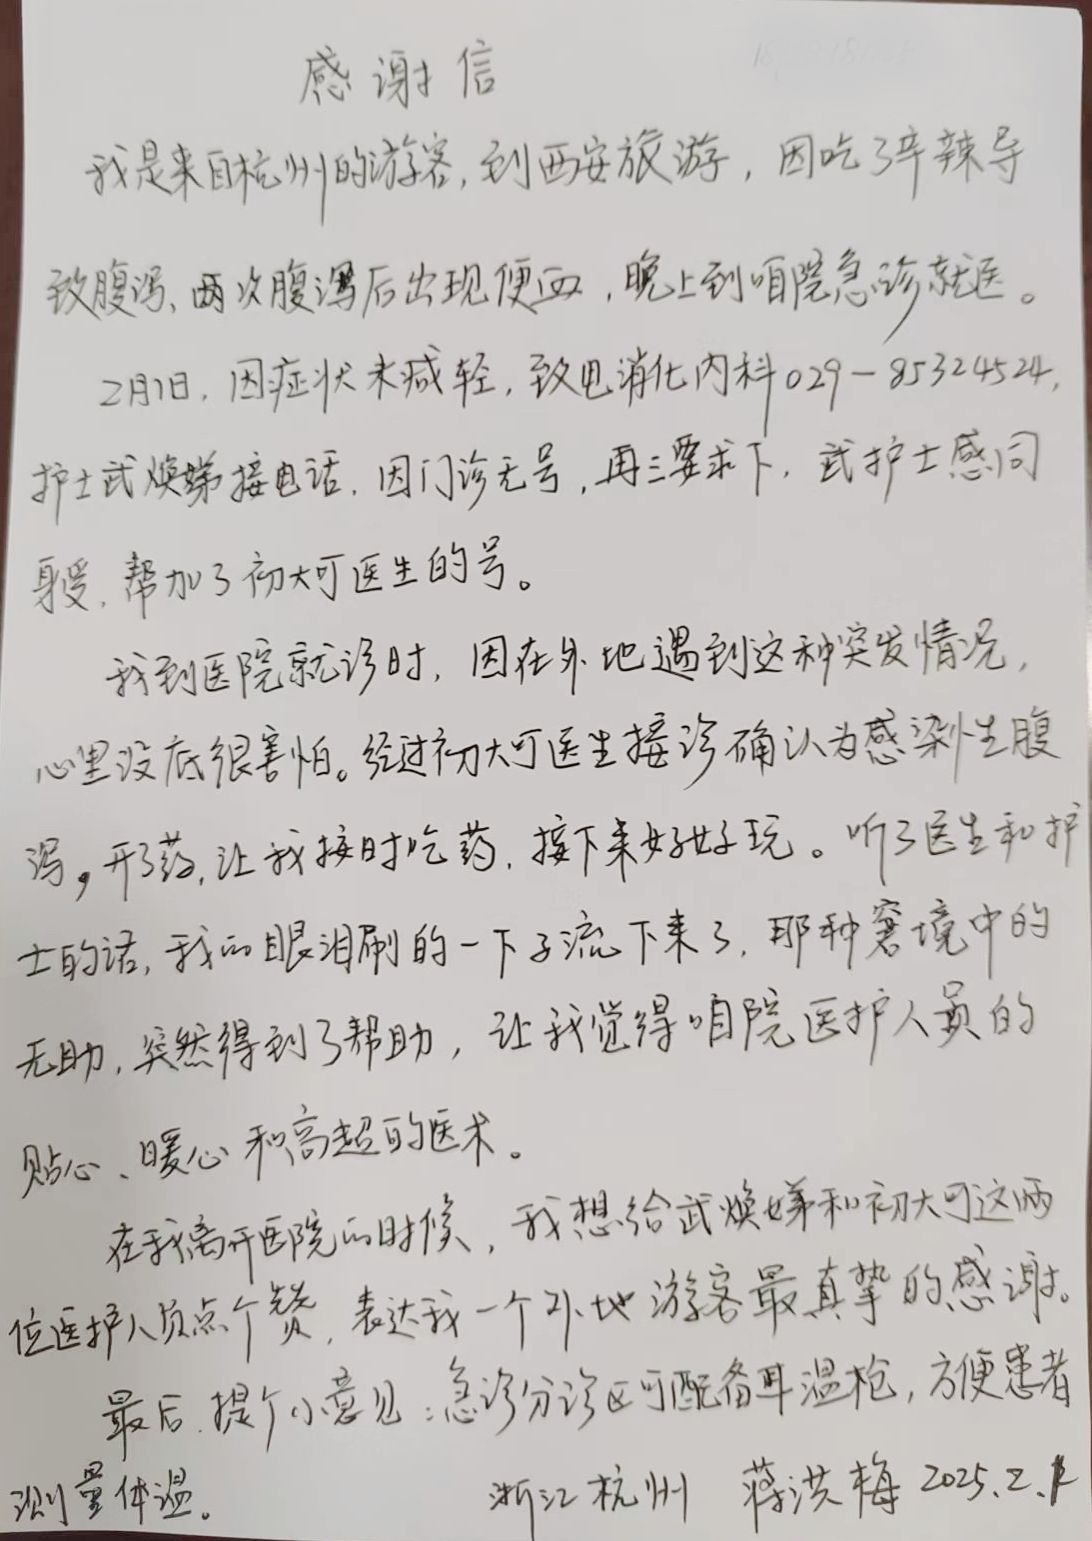 感谢信
我是来自杭州的游客,到西安旅游,因吃了辛辣导
致腹泻、两次腹泻后出现便血,晚上到咱院急诊就医。
2月1日,因症状未减轻,致电消化内科029-85324524,
护士武焕娣接电话,因门诊无号,再三要求下,武护士感同
身受,帮加了初大可医生的号。
我到医院就诊时,因在外地遇到这种突发情况,
心里没底很害怕。经过初大可医生接诊确认为感染性腹
泻,开了药,让我按时吃药,接下来好好玩。听了医生和护
士的话,我的眼泪刷的一下子流下来了,那种窘境中的
无助,突然得到了帮助,让我觉得咱院医护人员的
贴心、暖心和高超的医术。
在我离开医院的时候,我想给武焕娣和初大可这两
位医护人员点个赞,表达我一个外地游客最真挚的感谢。
最后,提个小意见:急诊分诊区可配备耳温枪,方便患者
测量体温。 浙江杭州 蒋洪梅 2025.2.1